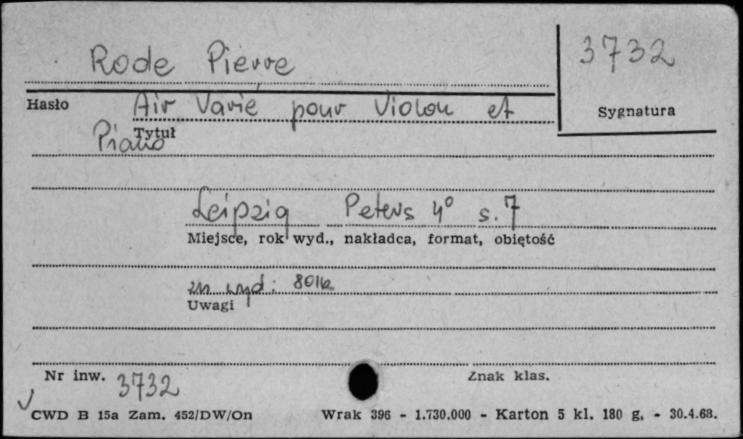 Rode Pierre
3732
Hasło Air Varié pour Violon et
Sygnatura
Piano Tytuł
Leipzig Peters 4° s. 7
Miejsce, rok wyd., nakładca, format, objętość
zn wyd:
Uwagi
Nr inw. 3732
Znak klas.
CWD B 15a Zam. 452/DW/On Wrak 396 - 1.730.000 - Karton 5 kl. 180 g. - 30.4.68.